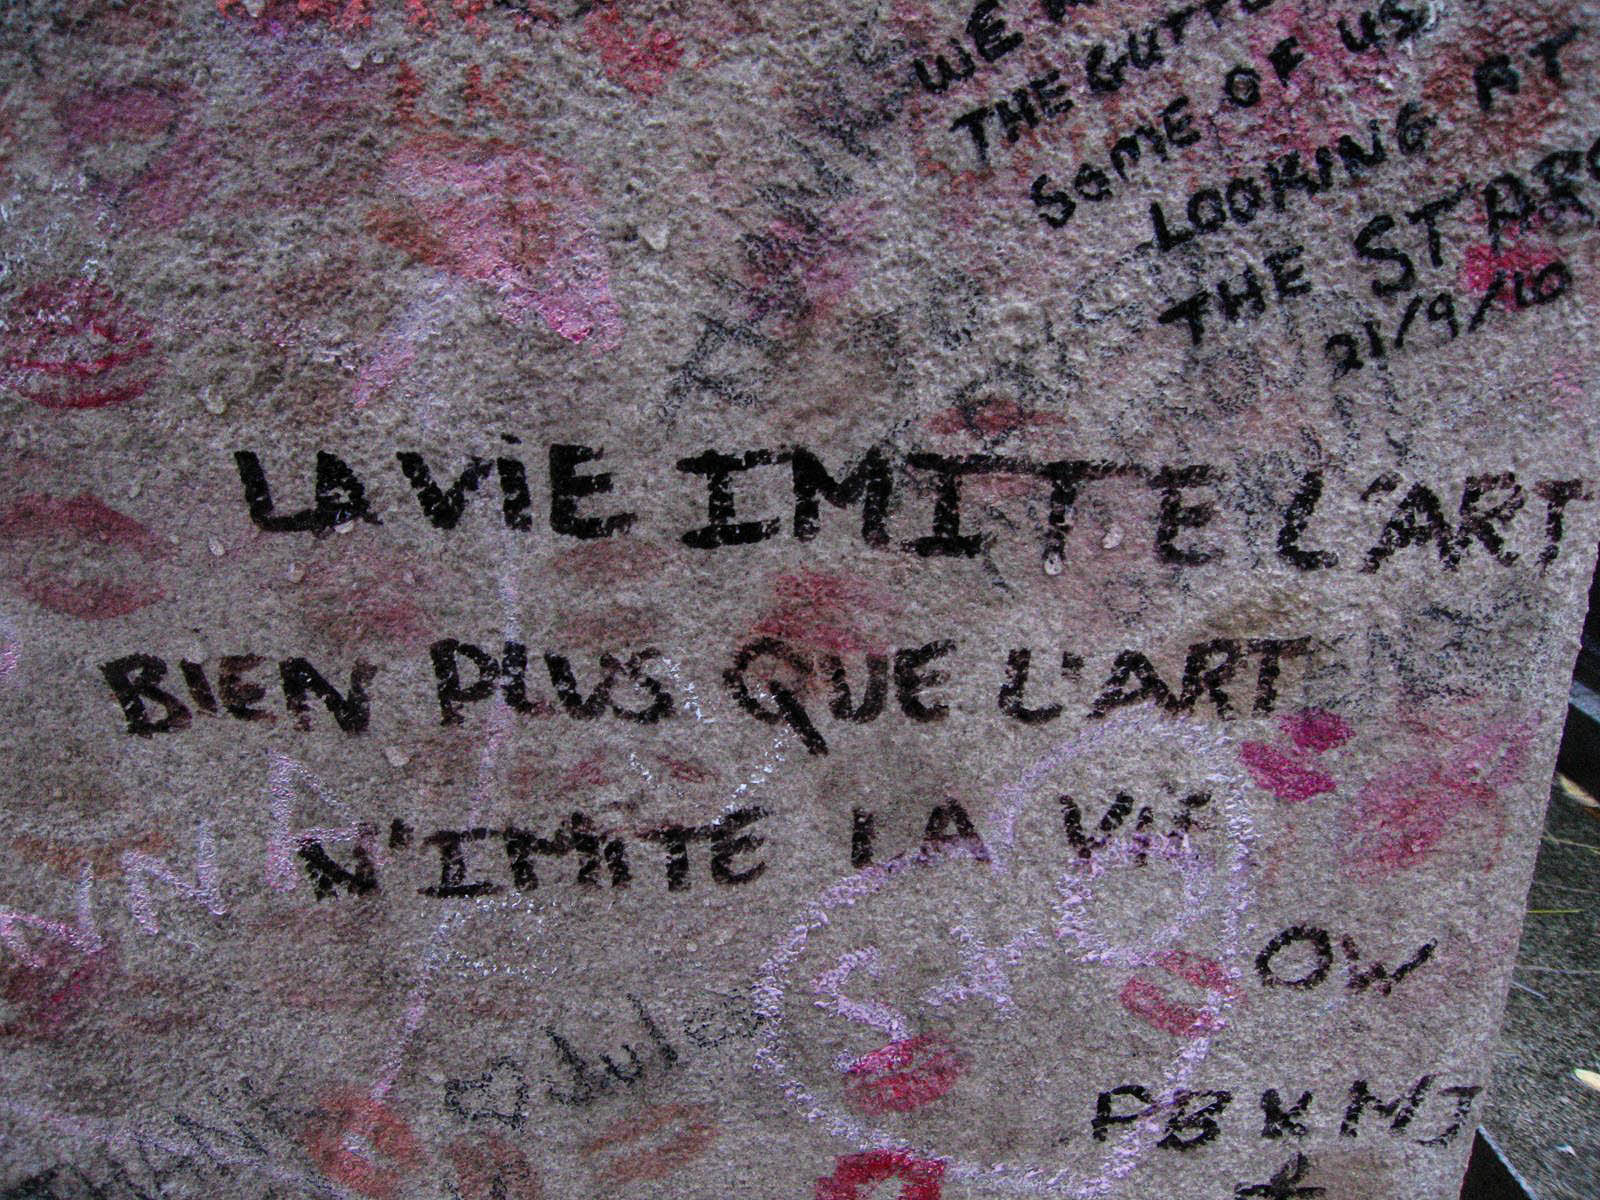 WE
THE GUTT
SOME OF US
LOOKING AT
THE STARS
21/9/10
LA VIE IMITE L'ART
BIEN PLUS QUE L'ART
N'IMITE LA VIE
OW
PB